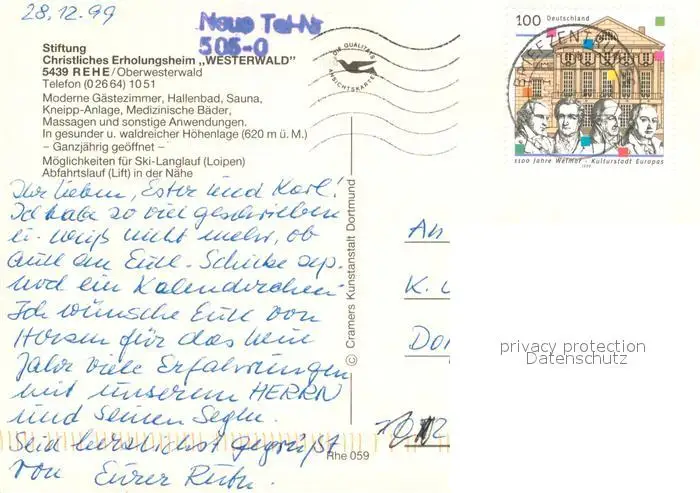 28.12.99
Neue Tel-Nr
505-0
Stiftung
Christliches Erholungsheim „WESTERWALD"
5439 REHE/Oberwesterwald
Telefon (02664) 1051
Moderne Gästezimmer, Hallenbad, Sauna,
Kneipp-Anlage, Medizinische Bäder,
Massagen und sonstige Anwendungen.
In gesunder u. waldreicher Höhenlage (620 m ü. M.)
– Ganzjährig geöffnet –
Möglichkeiten für Ski-Langlauf (Loipen)
Abfahrtslauf (Lift) in der Nähe
DIE QUALITÄTS
ANSICHTSKARTE
100 Deutschland
BRIEFZENTRUM
1100 Jahre Weimar - Kulturstadt Europas
1999
Ihr lieben, Ester und Karl!
Ich habe so viel geschrieben
u. weiß nicht mehr, ob
auch an Euch. Schicke
noch ein Kalenderchen
Ich wünsche Euch von
Herzen für das neue
Jahr viele Erfahrungen
mit unserem HERRN
und seinen Segen.
Seid herzlichst gegrüßt
von Eurer Ruth.
© Cramers Kunstanstalt Dortmund
Rhe 059
An
K. L
Dor
privacy protection
Datenschutz